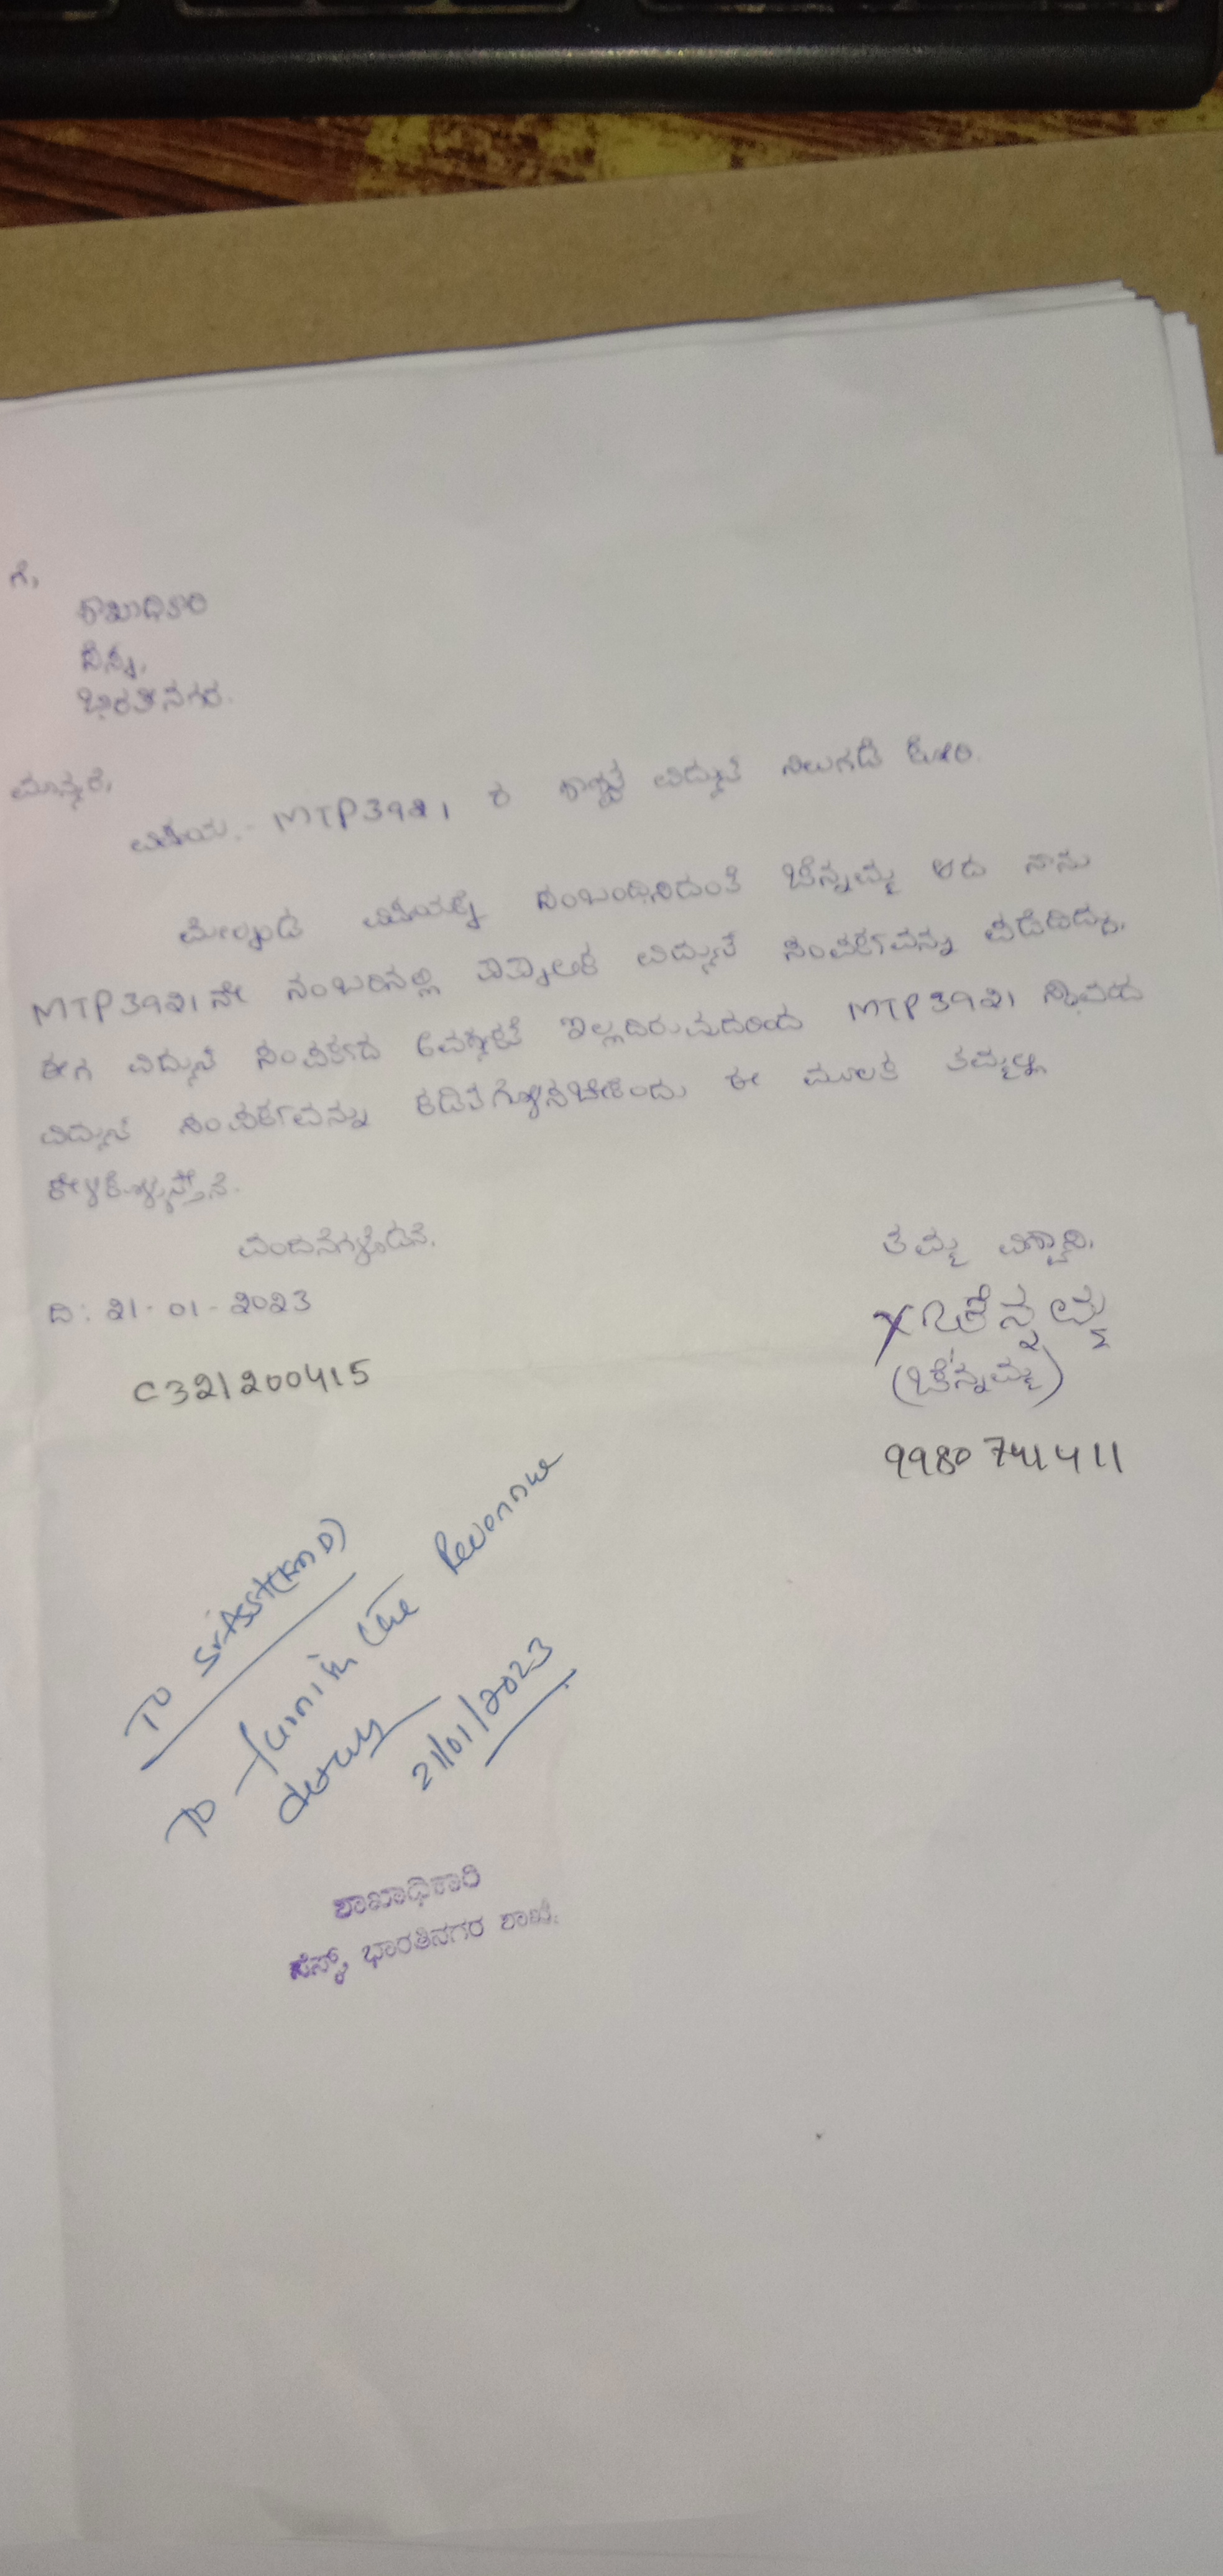 ಗೆ,
ಶಾಖಾಧಿಕಾರಿ
ಸೆಸ್ಕ,
ಭಾರತಿನಗರ.
ಮಾನ್ಯರೆ,
ವಿಷಯ:- MTP3921 ರ ಶಾಶ್ವತ ವಿದ್ಯುತ್ ನಿಲುಗಡೆ ಕೋರಿ.
ಮೇಲ್ಕಂಡ ವಿಷಯಕ್ಕೆ ಸಂಬಂಧಿಸಿದಂತೆ ಚೆನ್ನಮ್ಮ ಆದ ನಾನು
MTP3921ನೇ ನಂಬರಿನಲ್ಲಿ ತಾತ್ಕಾಲಿಕ ವಿದ್ಯುತ್ ಸಂಪರ್ಕವನ್ನು ಪಡೆದಿದ್ದು,
ಈಗ ವಿದ್ಯುತ್ ಸಂಪರ್ಕದ ಅವಶ್ಯಕತೆ ಇಲ್ಲದಿರುವುದರಿಂದ MTP3921
ವಿದ್ಯುತ್ ಸಂಪರ್ಕವನ್ನು ಕಡಿತಗೊಳಿಸಬೇಕೆಂದು ಈ ಮೂಲಕ ತಮ್ಮಲ್ಲಿ
ಕೇಳಿಕೊಳ್ಳುತ್ತೇನೆ.
ವಂದನೆಗಳೊಡನೆ.
ತಮ್ಮ ವಿಶ್ವಾಸಿ.
ದಿ: 21-01-2023
X ಚೆನ್ನಮ್ಮ
(ಚೆನ್ನಮ್ಮ)
C321200415
9980741411
To Sr.Asst(KMD)
To furnish the Revennue
21/01/2023
ಶಾಖಾಧಿಕಾರಿ
ಸೆಸ್ಕ್, ಭಾರತಿನಗರ ಶಾಖೆ.